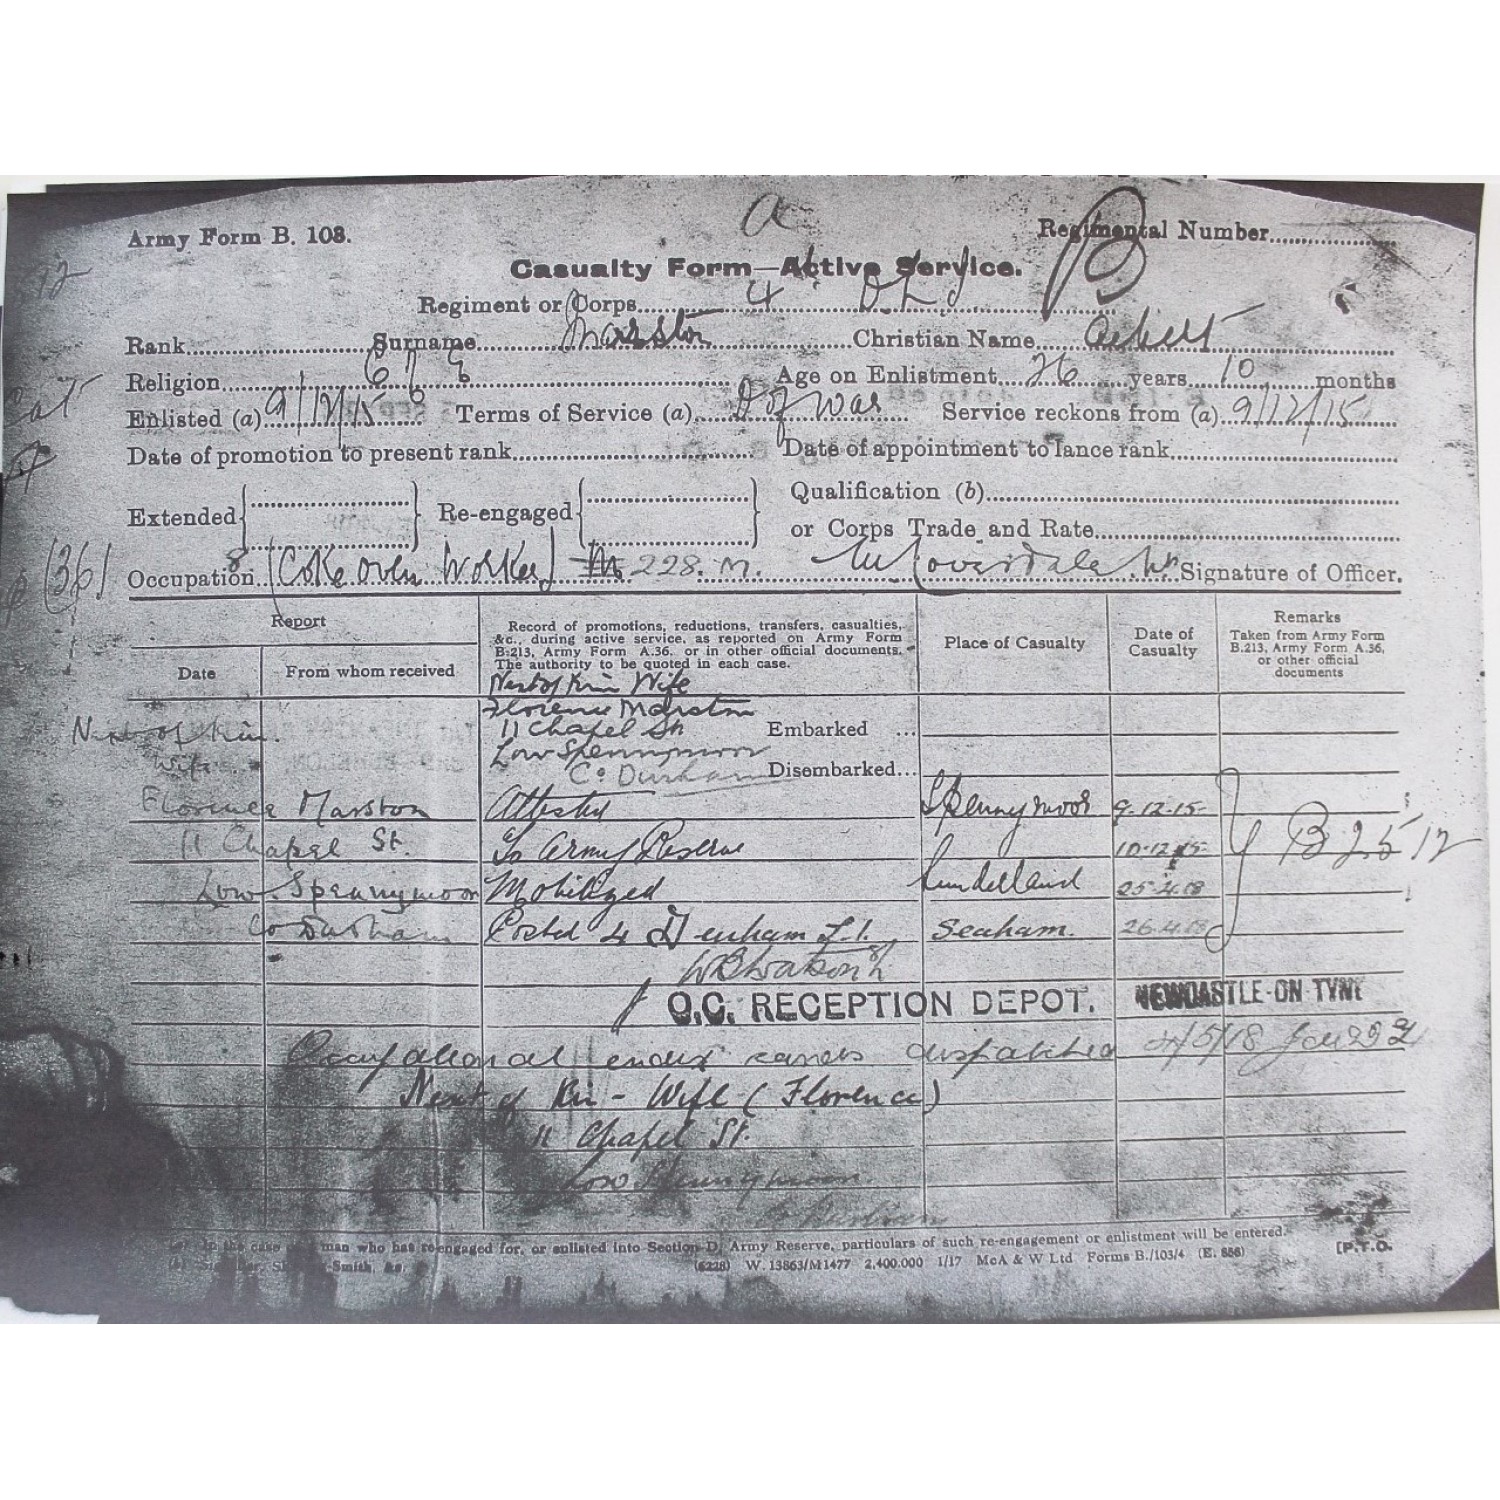 a
Army Form B. 103.
Regimental Number
B
12
Casualty Form—Active Service.
Regiment or Corps 4 D L I
Rank Surname Marston Christian Name Albert
Religion C of E Age on Enlistment 26 years 10 months
Enlisted (a) 9/12/15 Terms of Service (a) D of War Service reckons from (a) 9/12/15
Date of promotion to present rank Date of appointment to lance rank
Extended Re-engaged Qualification (b)
or Corps Trade and Rate
(36) Occupation Coke Oven Worker M. 228. M. Signature of Officer.
Report
Date
From whom received
Record of promotions, reductions, transfers, casualties,
&c., during active service, as reported on Army Form
B.213, Army Form A.36, or in other official documents.
The authority to be quoted in each case.
Place of Casualty
Date of
Casualty
Remarks
Taken from Army Form
B.213, Army Form A.36,
or other official
documents
Next of Kin Wife
Florence Marston
11 Chapel St
Low Spennymoor
Co Durham
Embarked ...
Disembarked...
Next of Kin.
Wife
Florence Marston
11 Chapel St.
Low Spennymoor
Co Durham
Attested Spennymoor 9-12-15
To Army Reserve 10-12-15
Mobilized Sunderland 25-4-18
Posted 4 Durham L.I. Seaham. 26-4-18
B 2512
O.C. RECEPTION DEPOT. NEWCASTLE-ON-TYNE
Occupational index cards dispatched 5/18
Next of Kin - Wife (Florence)
11 Chapel St.
Low Spennymoor
Co Durham
(a) In the case of a man who has re-engaged for, or enlisted into Section D, Army Reserve, particulars of such re-engagement or enlistment will be entered.
Smith, &c.
(6228) W. 13863/M1477 2,400,000 1/17 McA & W Ltd Forms B./103/4 (E. 856)
[P.T.O.